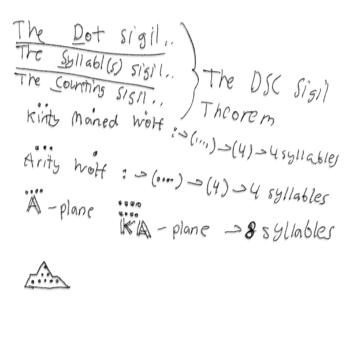 The Dot sigil..
The Syllabl(s) sigil..
The Counting sigil..
The DSC Sigil
Theorem
Kinty Maned wolf :→(....)→(4)→4 syllables
Arity wolf :→(....)→(4)→4 syllables
A -plane
KA -plane → 8 syllables